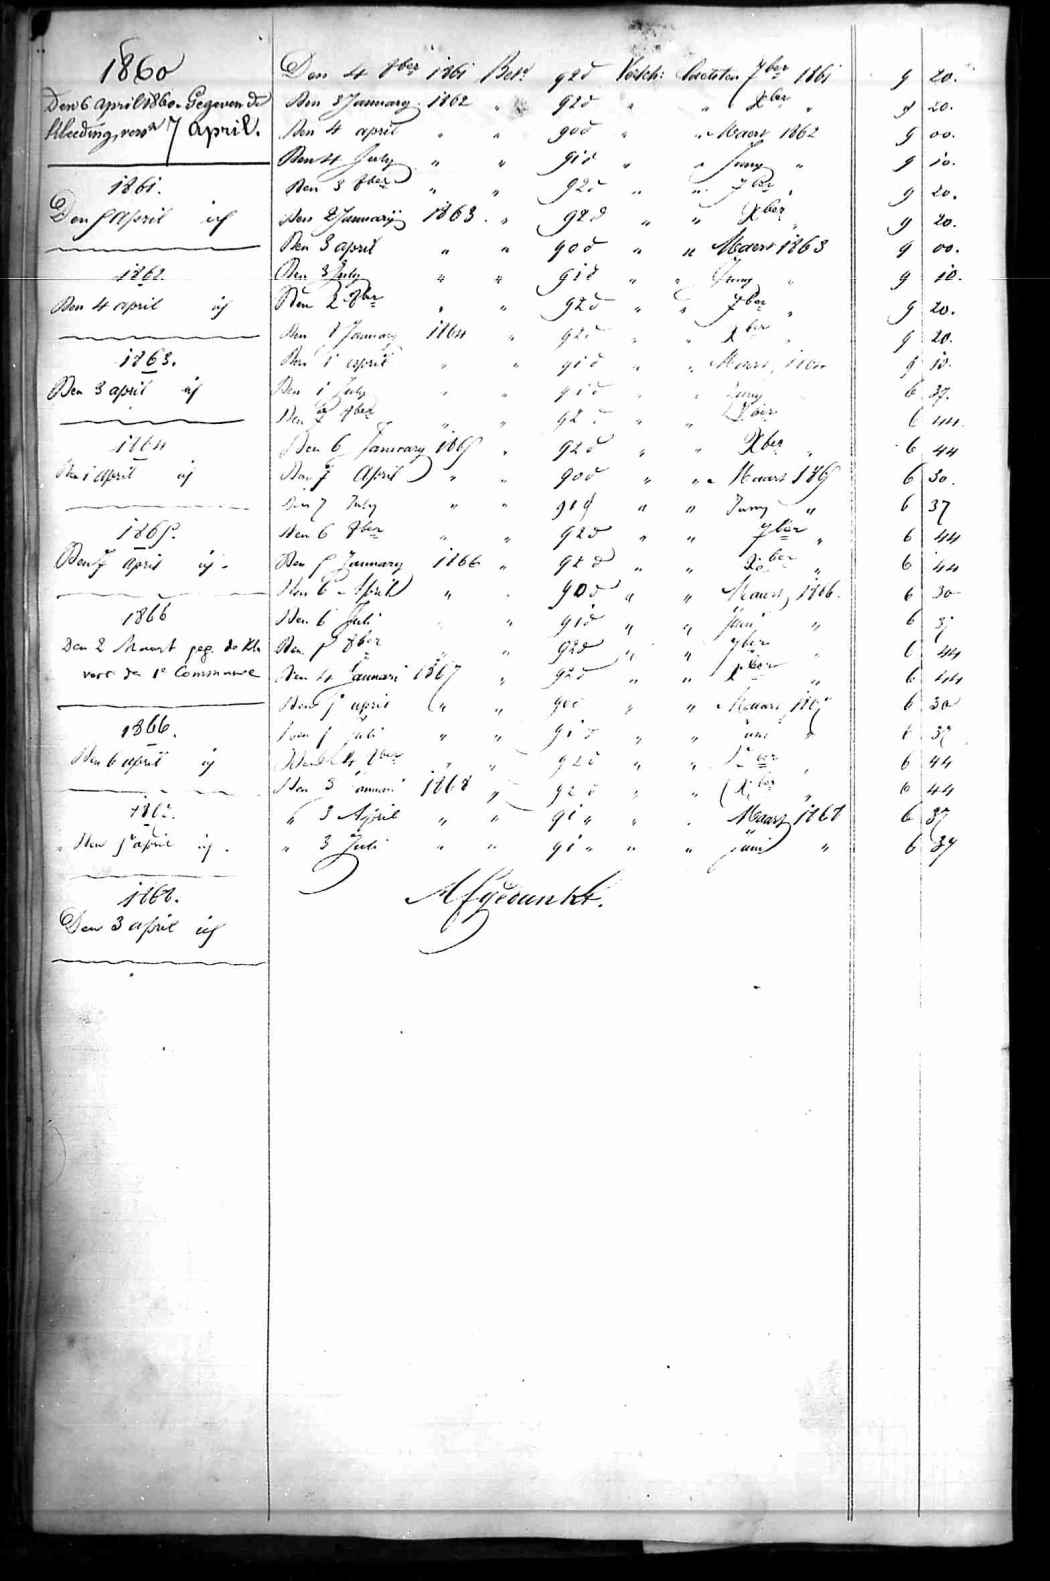 1860
Den 6 april 1860. Gegeven de
kleeding, verv. 7 April.
1861.
Den 5 April id
1862.
Den 4 april id
1863.
Den 3 april id
1864
Den 1 April id
1865.
Den 7 april id.
1866
Den 2 Maart geg. de kle
voor de 1e Communie
1866.
Den 6 april id
1867.
Den 5 april id.
1868.
Den 3 april id
Den 4 8ber 1861 Bet. 92 d Versch: laetsten 7ber 1861 9 20.
Den 3 January 1862 " 92 d " " Xber " 9 20.
Den 4 april " " 90 d " " Maert 1862 9 00.
Den 4 July " " 91 d " " Juny " 9 10.
Den 3 8ber " " 92 d " " 7ber " 9 20.
Den 2 January 1863. " 92 d " " Xber 9 20.
Den 3 april " " 90 d " " Maert 1863 9 00.
Den 3 July " " 91 d " " Juny " 9 10.
Den 2 8ber " " 92 d " " 7ber " 9 20.
Den January 1864 " 92 d " " Xber 9 20.
Den 1 april " " 91 d " " Maert 9 10.
Den 1 July " " 91 d " Juny 6 37.
Den 8ber " " 92 " " 7ber 6 44.
Den 6 January 1865 " 92 d " " Xber " 6 44
Den 7 April " " 90 d " " Maart 1865 6 30.
Den 7 July " " 91 d " " Juny " 6 37
Den 6 8ber " " 92 d " " 7ber " 6 44
Den 5 January 1866 " 92 d " " Xber " 6 44
Den 6 April " " 90 d " " Maart, 1866. 6 30
Den 6 Juli " 91 d " " Juni " 6 37
Den 5 8ber " 92 d " " 7ber " 6 44
Den 4 Januari 1867 " 92 d " " Xber " 6 44
Den 5 april " " 90 d " " Maart, 1867 6 30
Den 5 Juli " " 91 d " " Juni " 6 37
Den 4 8ber " " 92 d " " 7ber " 6 44
Den 3 Januari 1868 " 92 d " " Xber " 6 44
" 3 April " " 91 " " Maart 1868 6 37
" 3 Juli " " 91 " " " juni " 6 37
Afgedankt.